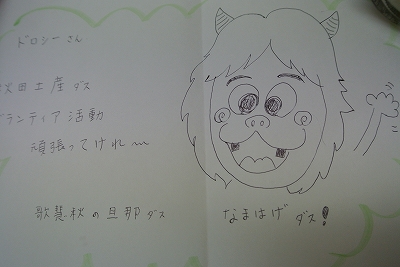 ドロシーさん
秋田土産ダス
ボランティア活動
頑張ってけれ〜
歌慧秋の旦那ダス
なまはげダス!